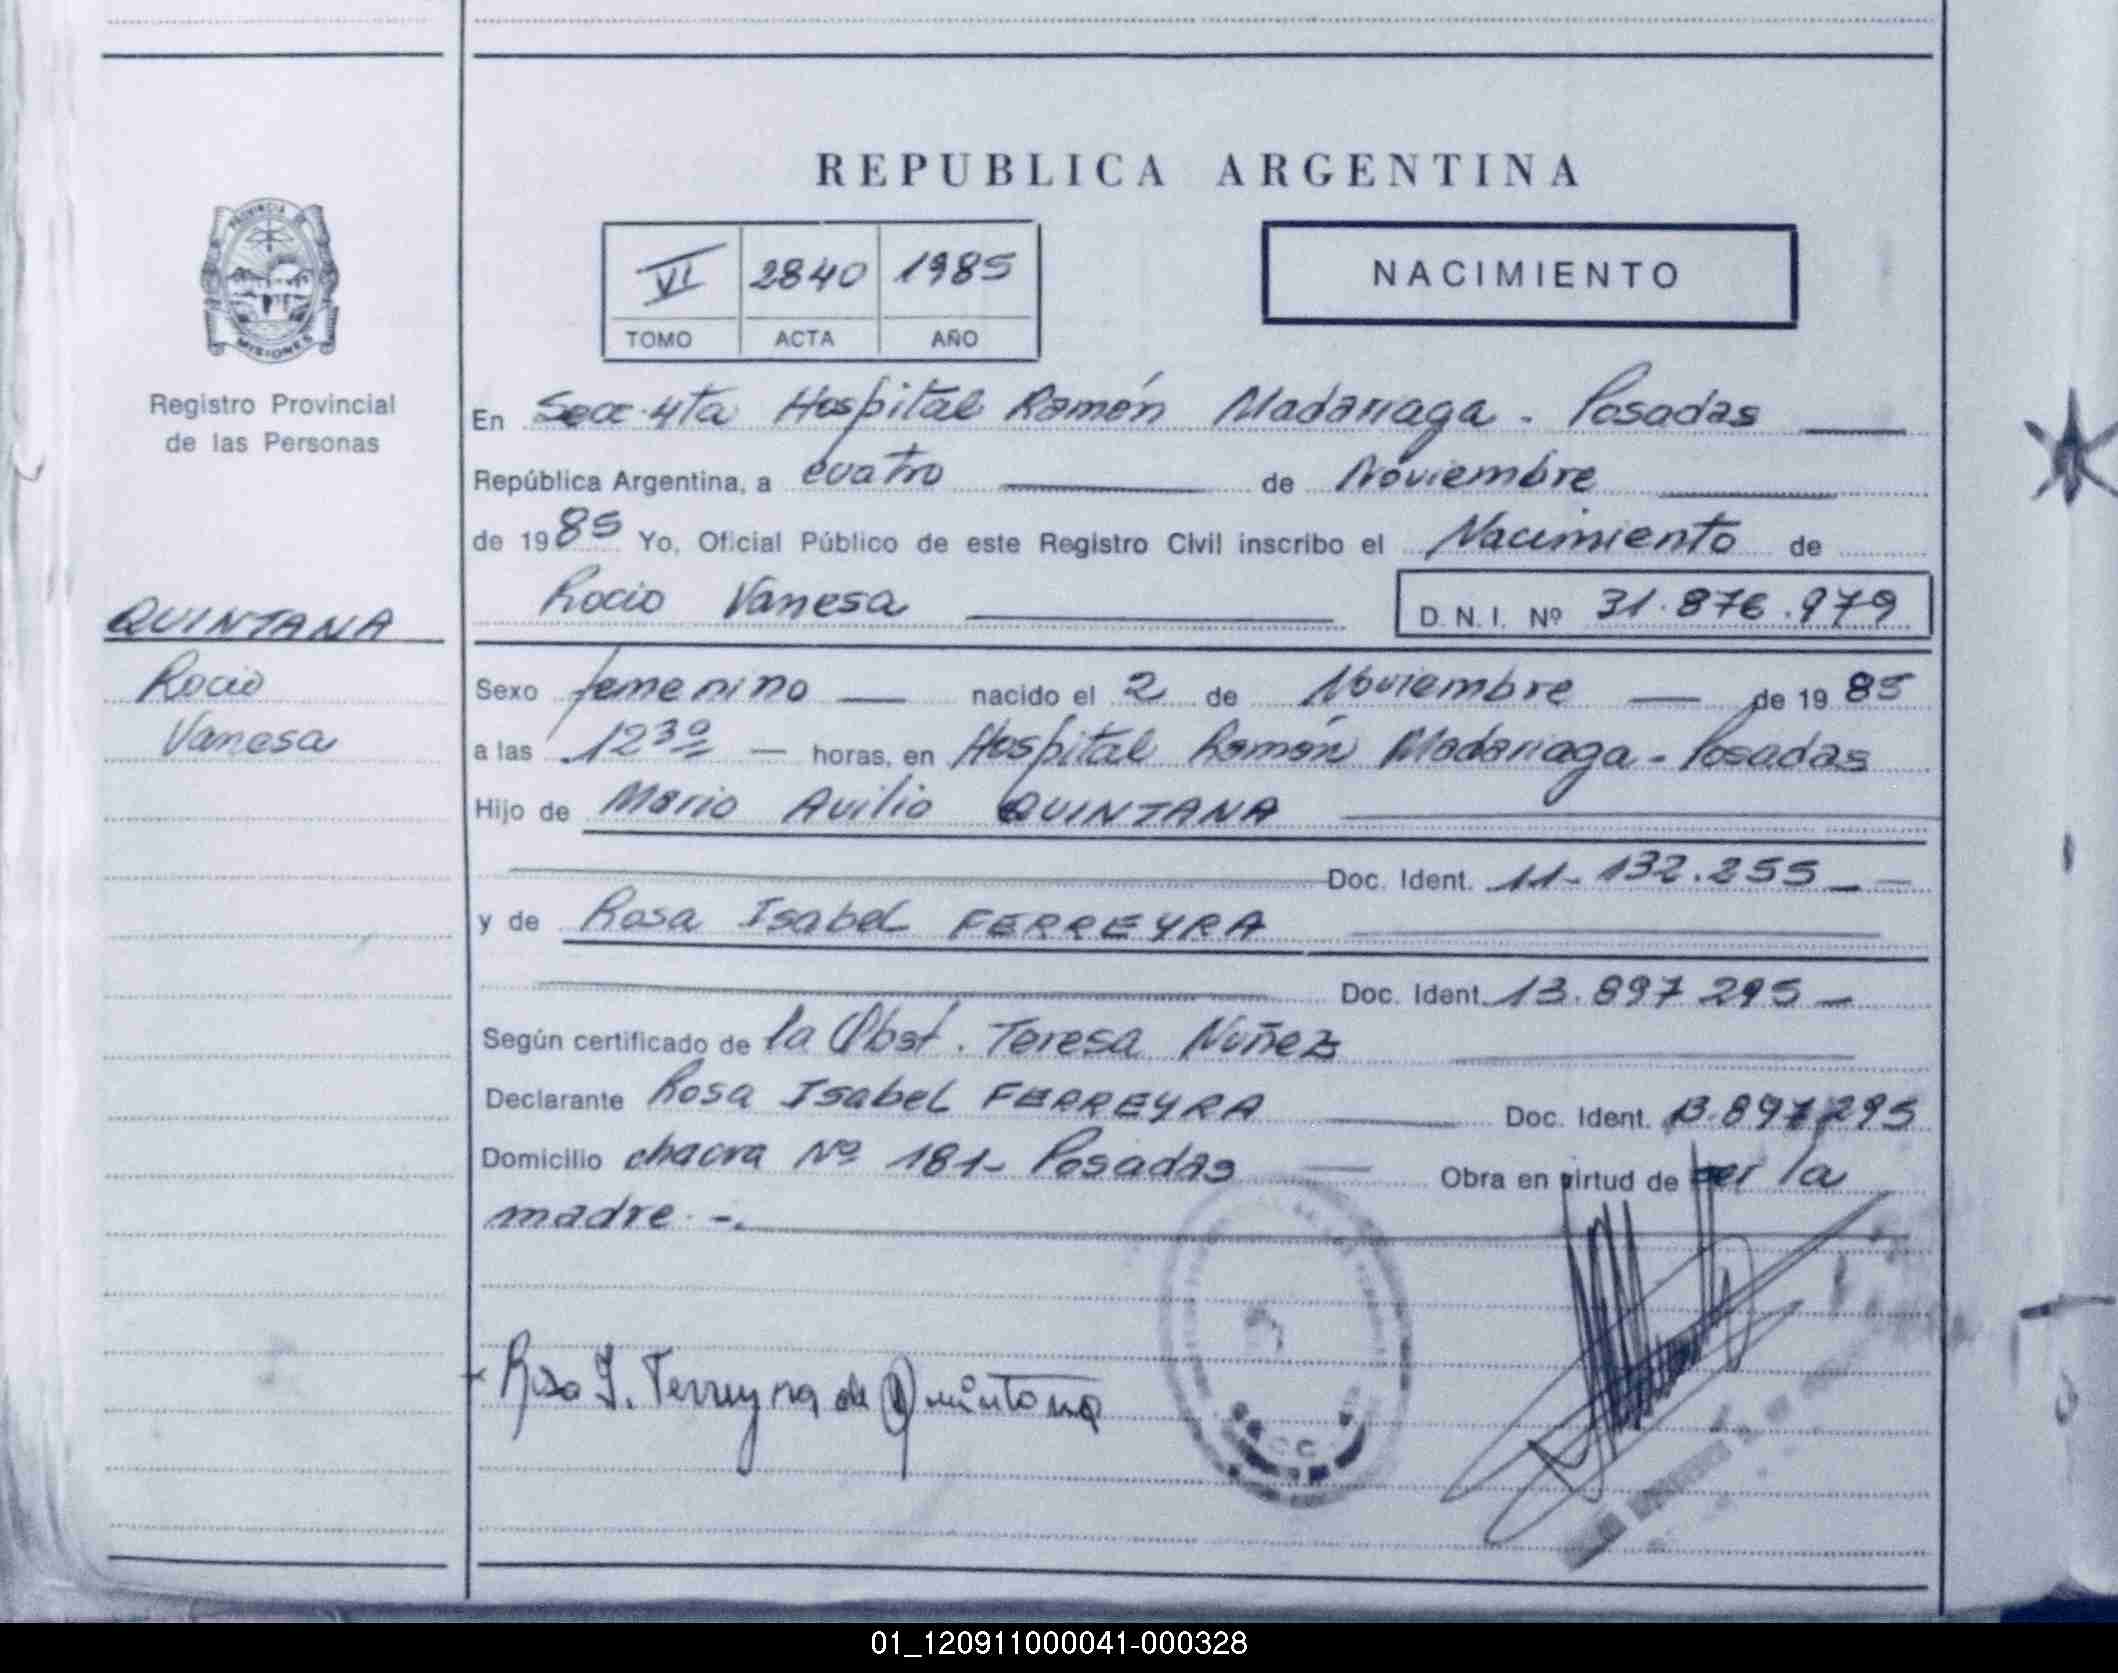 REPUBLICA ARGENTINA
PROVINCIA
MISIONES
Registro Provincial
de las Personas
VI 2840 1985
TOMO ACTA AÑO
NACIMIENTO
En Secc. 4ta Hospital Ramón Madariaga - Posadas
República Argentina, a cuatro de Noviembre
de 1985 Yo, Oficial Público de este Registro Civil inscribo el Nacimiento de
Rocio Vanesa D.N.I. Nº 31.876.979
QUINTANA
Rocio
Vanesa
Sexo femenino nacido el 2 de Noviembre de 1985
a las 12 30 horas, en Hospital Ramón Madariaga - Posadas
Hijo de Mario Avilio QUINTANA
Doc. Ident. 11-132.255
y de Rosa Isabel FERREYRA
Doc. Ident. 13.897 295
Según certificado de la Obst. Teresa Nuñez
Declarante Rosa Isabel FERREYRA Doc. Ident. 13.897.295
Domicilio chacra Nº 181- Posadas Obra en virtud de ser la
madre -.
Rosa I. Ferreyra de Quintana
01_120911000041-000328